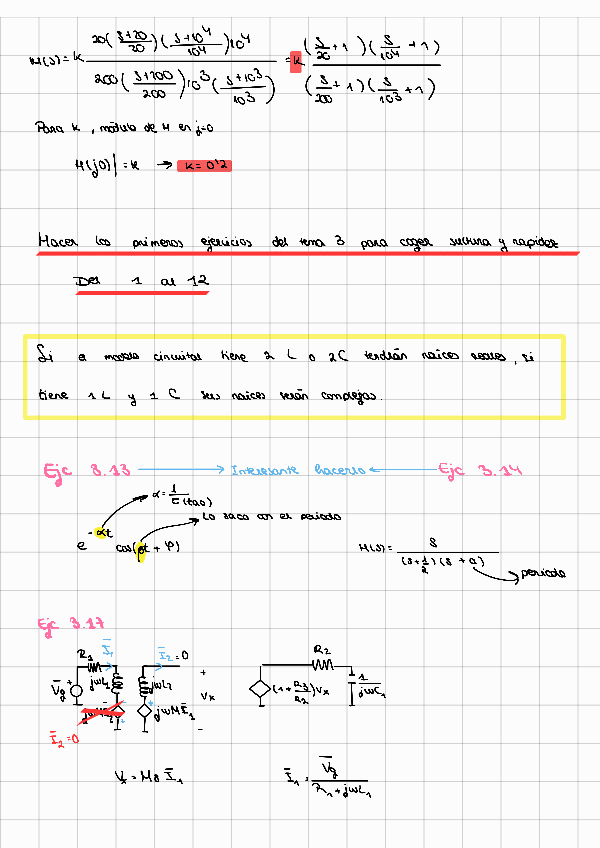 H(s) = K 20(s+20/20)(s+10⁴/10⁴)10⁴ / 200(s+200/200)10³(s+10³/10³) = K (s/20 + 1)(s/10⁴ + 1) / (s/200 + 1)(s/10³ + 1)
Para K, módulo de H en j=0
H(j0)| = K → K = 0'2
Hacer los primeros ejercicios del tema 3 para coger soltura y rapidez
Del 1 al 12
Si el modelo circuital tiene 2 L o 2C tendrán raíces reales, si
tiene 1 L y 1 C sus raíces serán complejas.
Ejc 3.13 → Interesante hacerlo ← Ejc 3.14
α = 1/τ (tao)
Lo saco con el periodo
e^-αt cos(βt + φ)
H(s) = s / (s+1/2)(s + a)
periodo
Ejc 3.17
R₁ I₁ I₂=0 R₂
Vg jωL₁ jωL₂ + Vx - (1+R₃/R₂)Vx 1/jωC₁
jωMI₁
I₂=0
Vx = Ms I₁ I₁ = Vg / R₁ + jωL₁